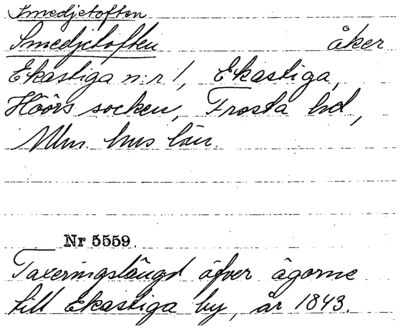 Smedjetoften
Smedjetoften åker
Ekastiga n:r 1, Ekastiga,
Höörs socken, Frosta hd,
Mlm. hus län.
Nr 5559.
Taxeringslängd öfver ägorne
till Ekastiga by, år 1843.